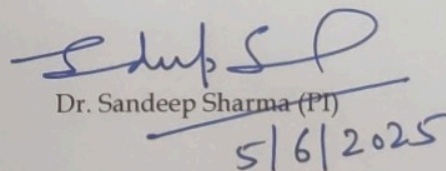 Dr. Sandeep Sharma (PI)
5/6/2025